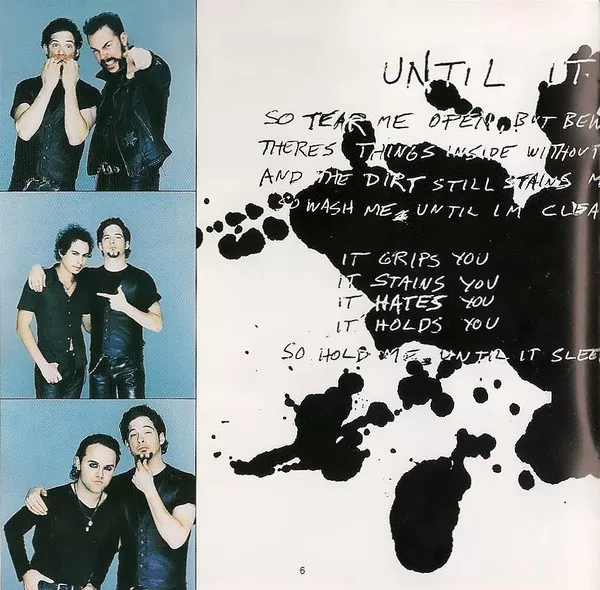 UNTIL IT
SO TEAR ME OPEN, BUT BEW
THERES THINGS INSIDE WITHOUT
AND THE DIRT STILL STAINS M
SO WASH ME UNTIL IM CLEA
IT GRIPS YOU
IT STAINS YOU
IT HATES YOU
IT HOLDS YOU
SO HOLD ME UNTIL IT SLEE
6